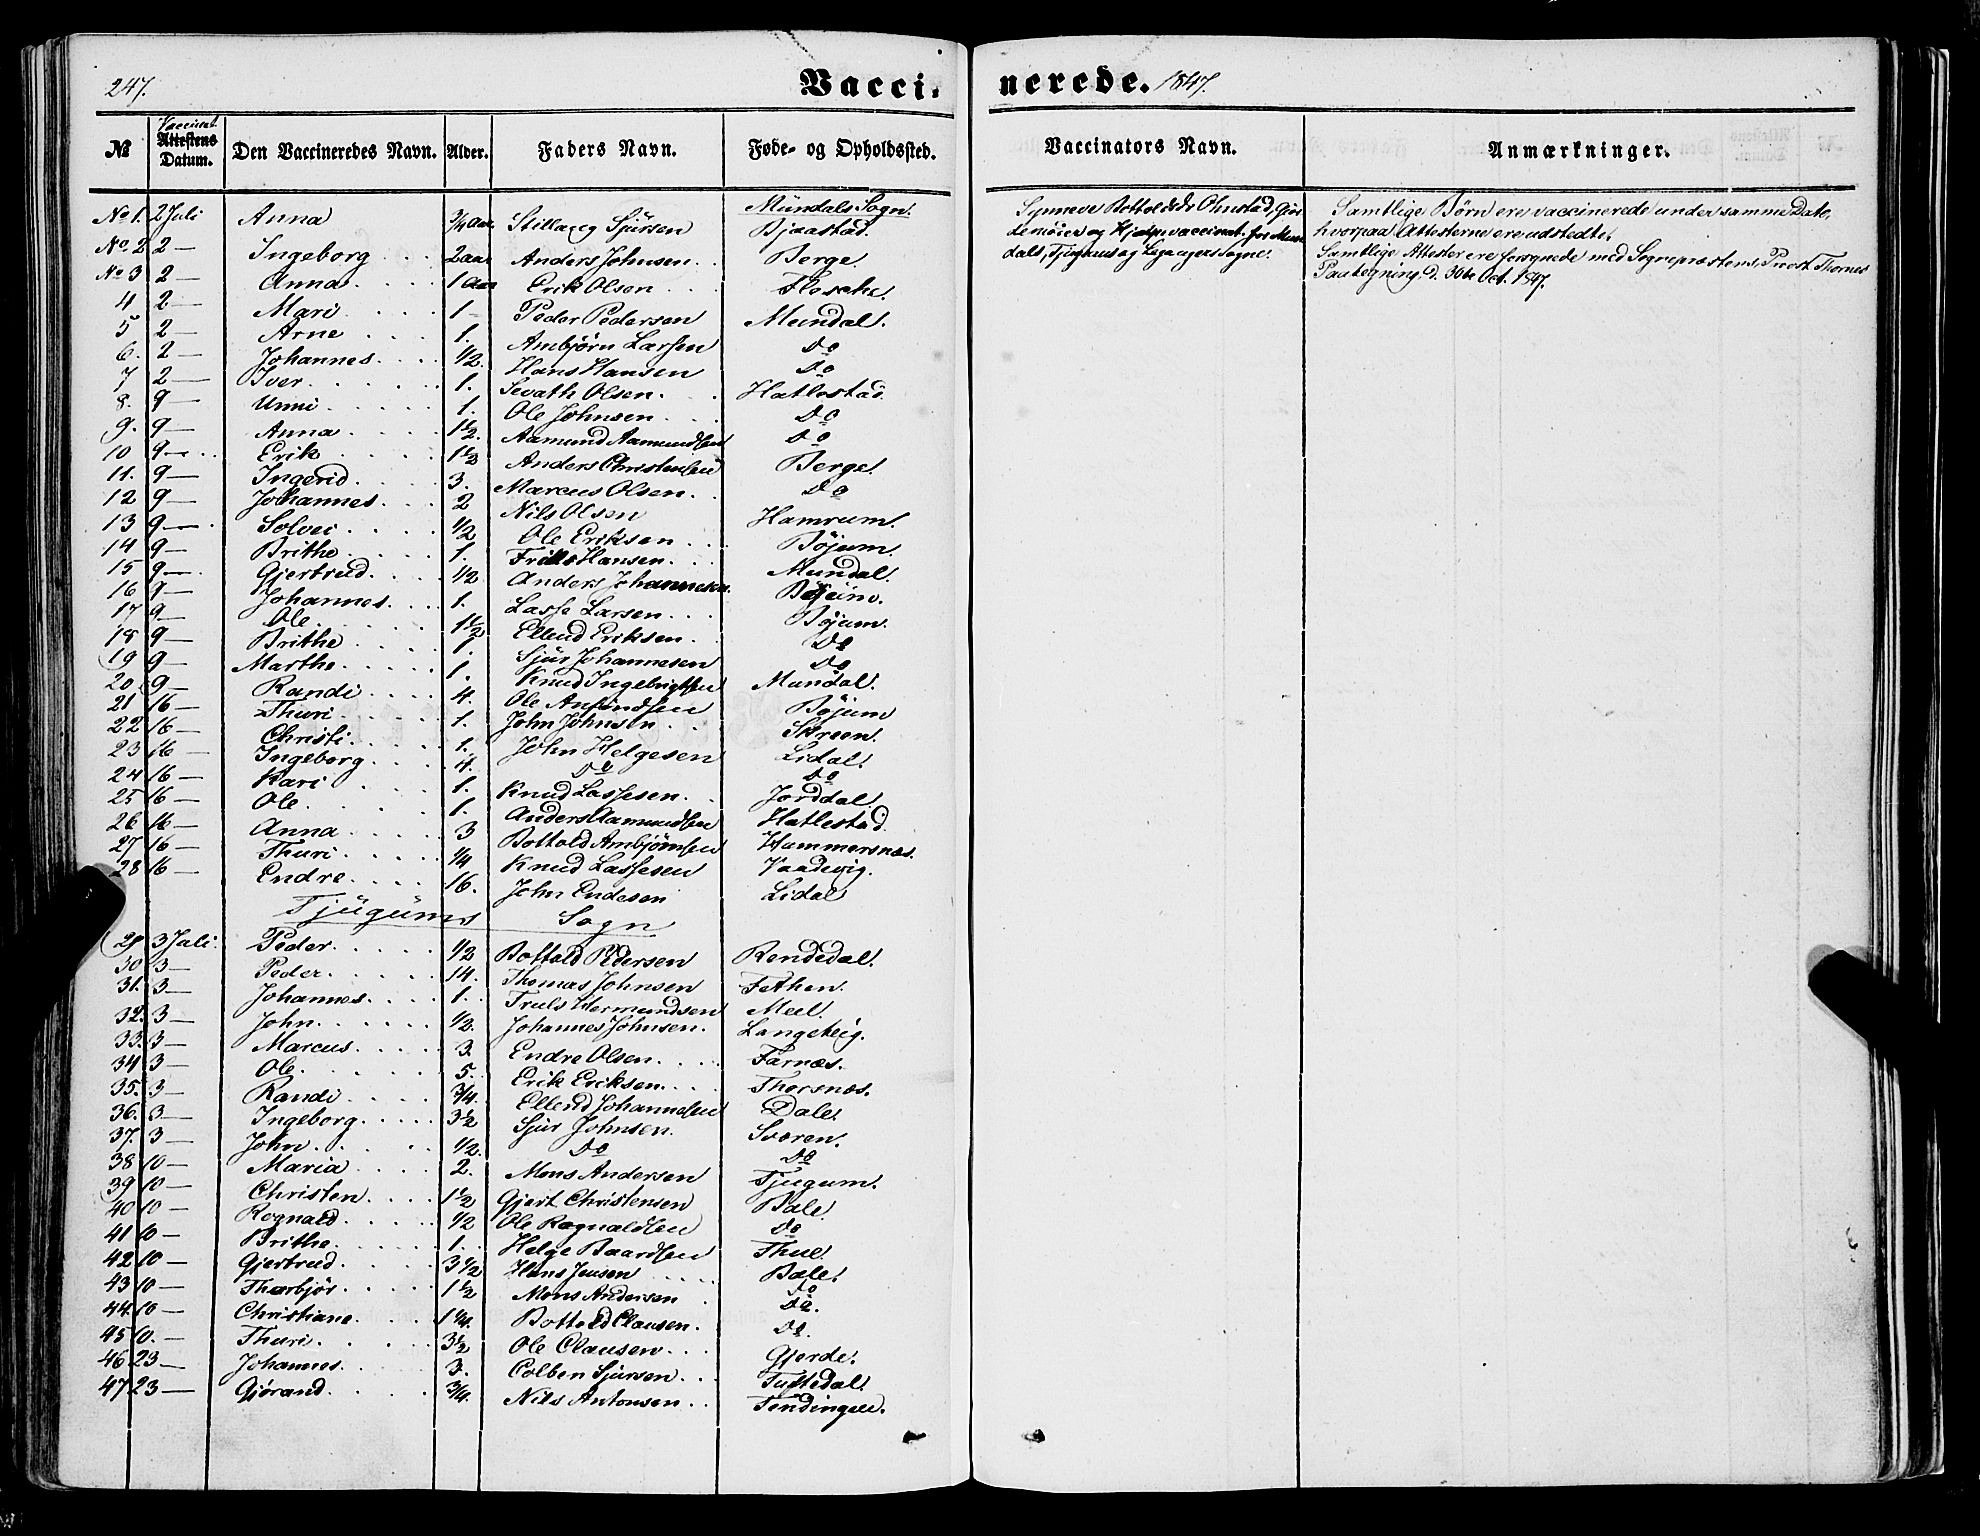 247.
Vacci-nerede. 1847.
№ | Vaccinat. Attestens Datum. | Den Vaccineredes Navn. | Alder. | Faders Navn. | Føde- og Opholdssted. | Vaccinators Navn. | Anmærkninger.
Mundals Sogn.
No 1. 2 Juli Anna 3/4 Aar. Sjursen Bjaastad.
No 2 2 — Ingeborg 2 aar Anders Johnsen Berge.
No 3 2 — Anna 1 Aar Erik Olsen
4 2 — Mari 1 — Peder Pedersen Mundal.
5 2 — Arne 1. Ambjørn Larsen Do
6. 2 — Johannes 1/2. Hans Hansen Do
7 2 — Iver 1. Sevath Olsen Hatlestad.
8. 9 — Unni 1. Ole Johnsen Do
9. 9 — Anna 1 1/2. Aamund Aamundsen Do
10 9 — Erik 1 1/2 Anders Christensen Berge.
11. 9 — Ingerid 3. Marcus Olsen Do
12 9 — Johannes 2 Nils Olsen Hamrum.
13 9 — Solvei 1/2 Ole Eriksen Bøjum.
14 9 — Brithe 1. Hansen Mundal.
15 9 — Gjertrud 1/2 Anders Johannesen Bøjum.
16 9 — Johannes 1. Lasse Larsen Bøjum.
17 9 — Ole 1 1/2 Ellend Eriksen Do
18 9 — Brithe 1. Sjur Johannesen Do
19 9 — Marthe 1. Knud Ingebrigtsen Mundal.
20 9 — Randi 4. Ole Anfindsen Bøjum
21 16 — Thuri 1. John Johnsen Skreen.
22 16 — Christi 1. John Helgesen Lidal.
23 16 — Ingeborg 4. Do Do
24 16 — Kari 1. Knud Lassesen Jorddal.
25 16 — Ole 1. Anders Aamundsen Hatlestad.
26 16 — Anna 3 Bottold Ambjørnsen Hammersnæs.
27 16 — Thuri 1/4 Knud Lassesen Vaadevig.
28 16 — Endre 16. John Endesen Lidal
Tjugums Sogn
29 3 Juli. Peder 1/2 Bottold Pedersen Rendedal.
30 3 — Peder 14. Thomas Johnsen Fethen.
31. 3 — Johannes 1. Truls Hermundsen Meel.
32. 3 — John 1/2. Johannes Johnsen. Langeteig.
33. 3 — Marcus 3. Endre Olsen Farnæs.
34 3 — Ole 5. Erik Eriksen Thorsnæs.
35. 3 — Randi 3/4. Ellend Johannesen Dale.
36. 3 — Ingeborg 3 1/2 Sjur Johnsen. Sværen.
37. 3 — John 1/2. Do Do
38 10 — Maria 2. Mons Andersen Tjugum.
39 10 — Christen 1 1/2 Gjert Christensen Bale.
40 10 — Rognald 1/2 Ole Rognaldsen Do
41 10 — Brithe 1. Helge Baardsen Thue.
42 10 — Gjertrud 3 1/2 Hans Jensen Bale.
43 10 — Thorbjør 1 1/2 Mons Andersen Do
44. 10 — Christiane 1 1/4. Bottold Clausen. Do.
45 10. — Thuri 3 1/2 Ole Clausen Do.
46 23 — Johannes 3. Colben Sjursen Gjerde.
47. 23 — Gjørand 3/4. Nils Antonsen Tuftedal.
Synneve Bottolds Dr Ohnstad,
og Hjelpevaccinat. for Mun
dals, Tjugums og Leganger Sogne.
Samtlige Børn ere vaccinerede under samme Dato,
hvorpaa Attesterne ere udstedte.
Samtlige Attester ere forsynede med Sognepræstens, Provst Thornes
Paategning d. 30te Oct. 1847.